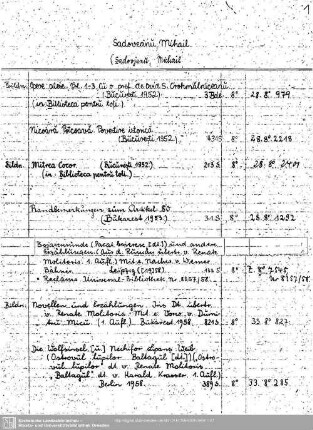 1
Sadoveanu, Mihail
(Sadovjanu, Mihail
Bibldn. Opere alese. Bd. 1-3, Cu o pref. de Ovid S. Crohmălniceanu
(București 1952) 3 Bde. 8° 28. 8° 979
(in: Biblioteca pentru toti.)
Nicoară Potcoavă. Povestire istorică
(București 1952). 431 S. 8° 28. 8° 2218
Bibldn. Mitrea Cocor. (București 1952). 203 S. 8° 28. 8° 2409
(in: Biblioteca pentru toti.)
Randbemerkungen zum
(Bukarest 1953) 31 S. 8° 28. 8° 1292
und andere
Erzählungen. (Aus d. Rumän. übertr. v. Renate
Molitoris. 1. Aufl.) Mit e. Nachw. v. Werner
Bahner. Leipzig (1958). 8° Z. 8° 7545
= Reclams Universal-Bibliothek Nr 8157/58. Nr 8157/58
Bibldn. Novellen und Erzählungen. Ins Dt. übertr.
v. Renate Molitoris. Mit e. Vorw. v. Dumi-
tru Micu (1. Aufl.) Bukarest 1958. 821 S. 8° 33. 8° 827.
Die Wolfsinsel [u.] Nechifor Lipans Weib
(Ostrovul lupilor Baltagul [dt.]) („Ostro-
vul lupilor" dt. v. Renate Molitoris.
„Baltagul" dt. v. Harald Krasser. 1. Aufl.)
Berlin 1958. 389 S. 8° 33. 8° 285.